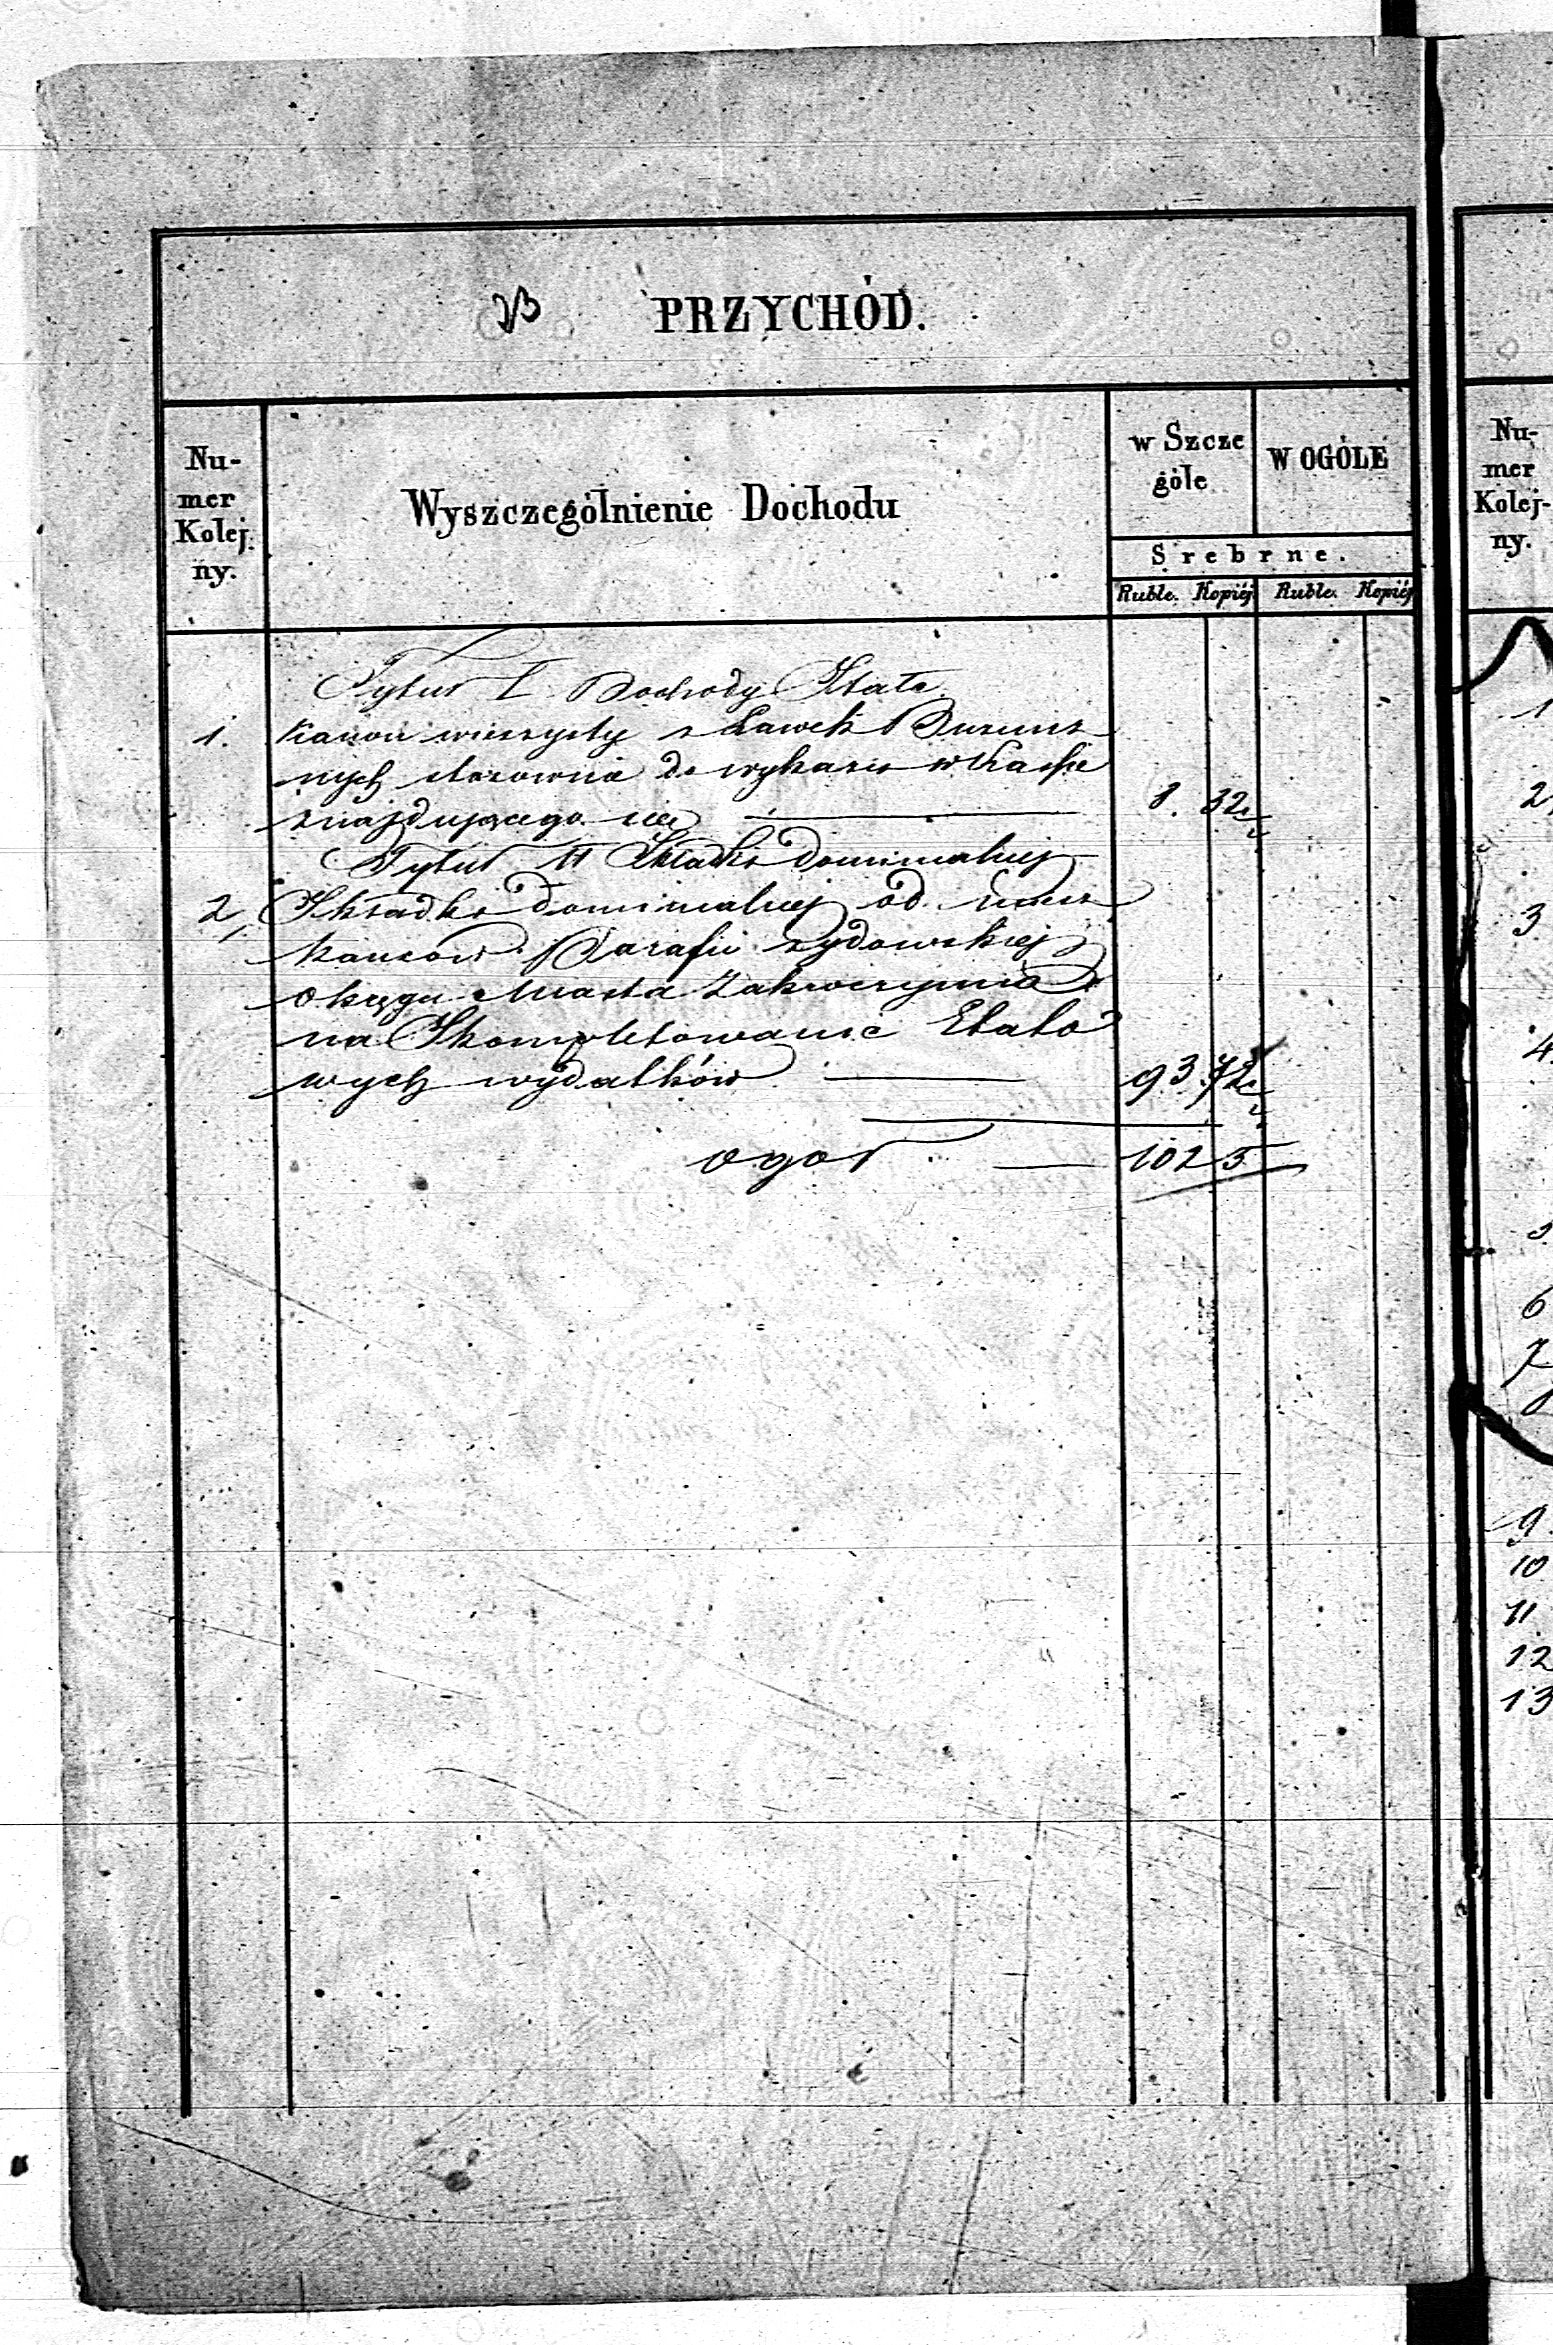 23 PRZYCHÓD.
Nu-
mer
Kolej-
ny.
Wyszczególnienie Dochodu
w Szcze
góle
W OGÓLE
Srebrne.
Ruble. Kopiéj Ruble. Kopiéj
Tytuł I Dochody Stałe
1. Kanon wieczysty z Ławek Buznicz
nych stosownie do wykazu w Kassie
znajdującego się 8. 32
Tytuł II Składki dominialnej
2, Składki dominialnej od miesz
kańców Parafii żydowskiej
okręgu Miasta Zakroczymia
na Skompletowanie Etato
wych wydatków 93. 72
Ogół 102 5
Nu-
mer
Kolej-
ny.
1
2
3
4
6
7
9.
10
11
12
13